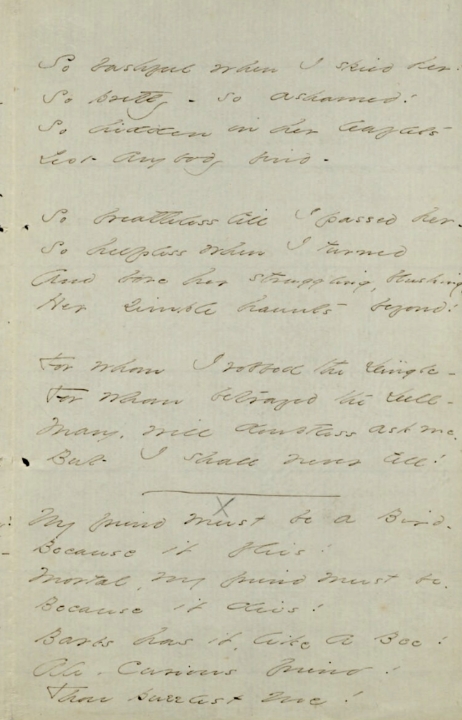 So bashful when I spied her!
So pretty - so ashamed!
So hidden in her leaflets
Lest anybody find -
So breathless till I passed her -
So helpless when I turned
And bore her struggling, blushing,
Her simple haunts beyond!
For whom I robbed the Dingle -
For whom betrayed the Dell -
Many, will doubtless ask me,
But I shall never tell!
x
My friend must be a Bird -
Because it flies!
Mortal, my friend must be,
Because it dies!
Barbs has it, like a Bee!
Ah, Curious friend!
Thou puzzlest me!